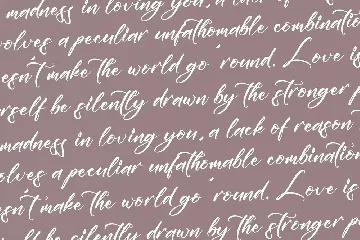 madness in loving you, a lack of reason
volves a peculiar unfathomable combinatio
esn't make the world go 'round. Love is
rself be silently drawn by the stronger p
madness in loving you, a lack of reason
volves a peculiar unfathomable combination
esn't make the world go 'round. Love is
self be silently drawn by the stronger p